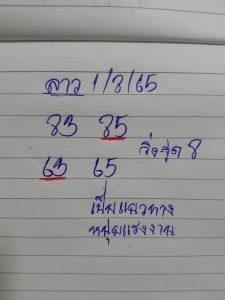 ลาว 1/8/65
83 85
วิ่งสุด 8
63 65
เป็นแนวทาง
หนุ่มแรงงาน